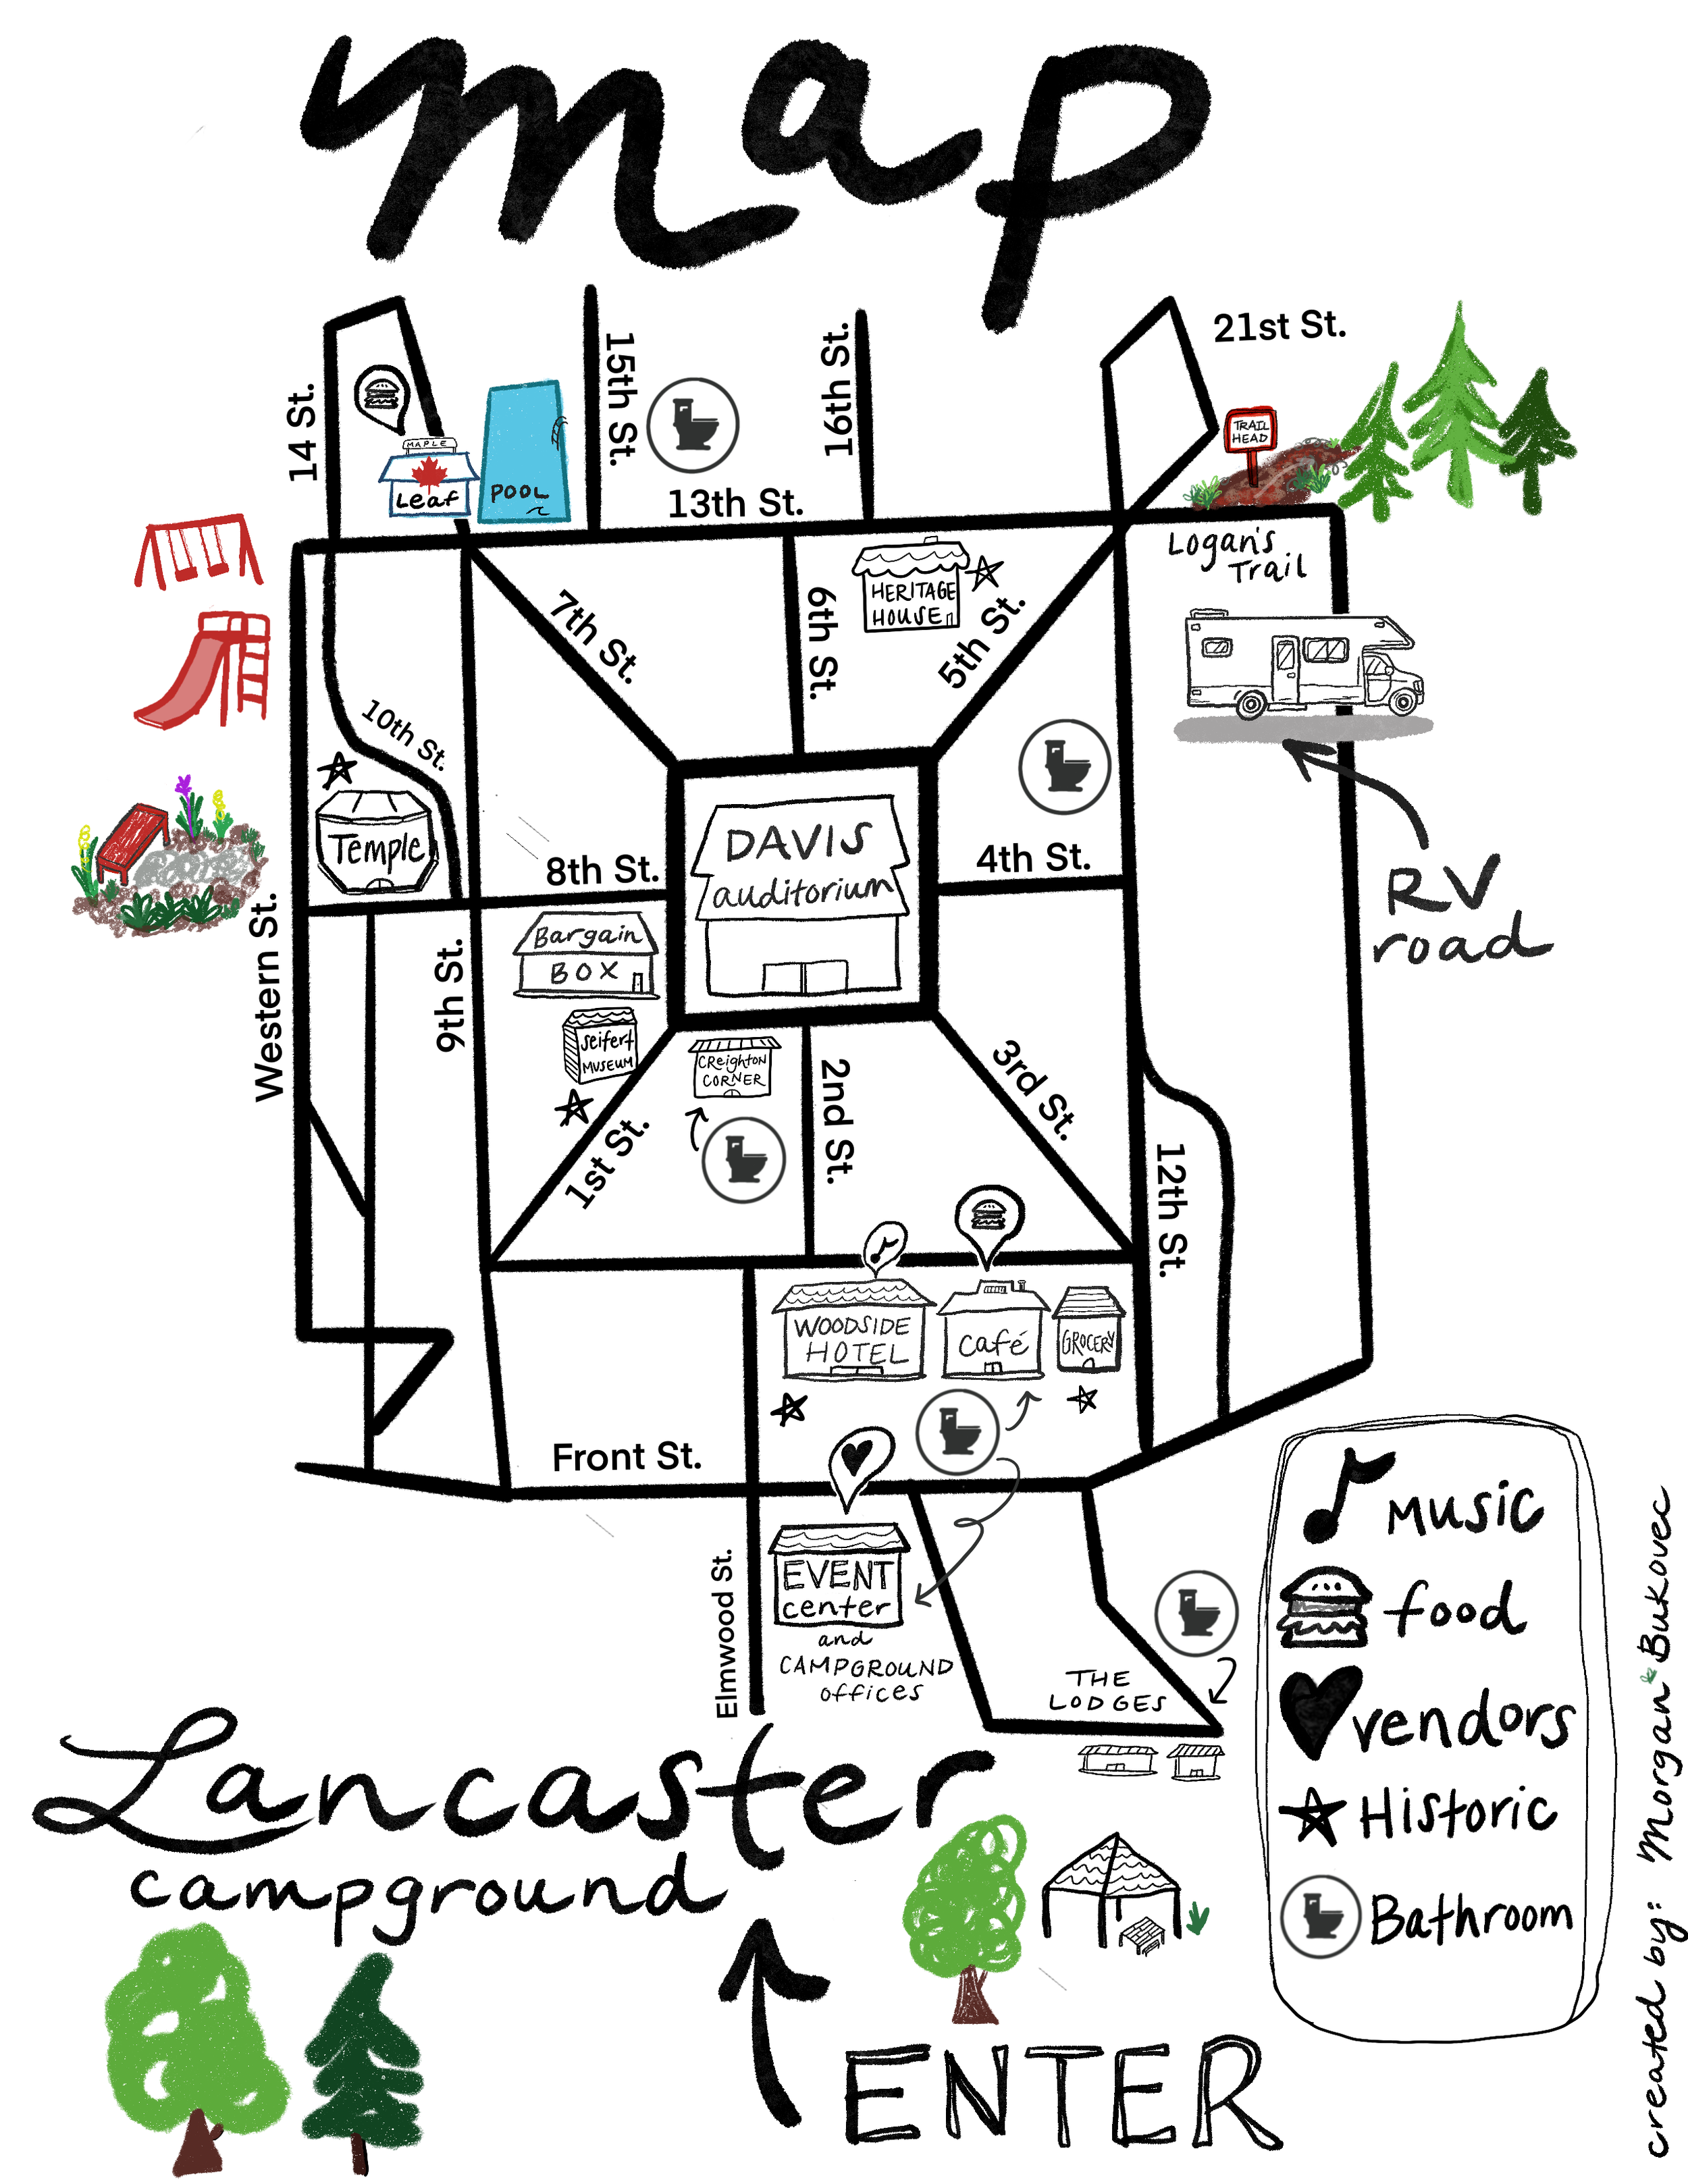 map
21st St.
14 St.
15th St.
16th St.
MAPLE
Leaf
POOL
13th St.
TRAIL
HEAD
Logan's
Trail
HERITAGE
HOUSE
7th St.
6th St.
5th St.
10th St.
Temple
8th St.
DAVIS
auditorium
4th St.
RV
road
Western St.
9th St.
Bargain
BOX
Seifert
MUSEUM
CReighton
CORNER
1st St.
2nd St.
3rd St.
12th St.
WOODSIDE
HOTEL
Café
GROCERY
Front St.
Elmwood St.
EVENT
center
and
CAMPGROUND
offices
THE
LODGES
Music
food
vendors
Historic
Bathroom
Lancaster
campground
ENTER
created by: Morgan Bukovec